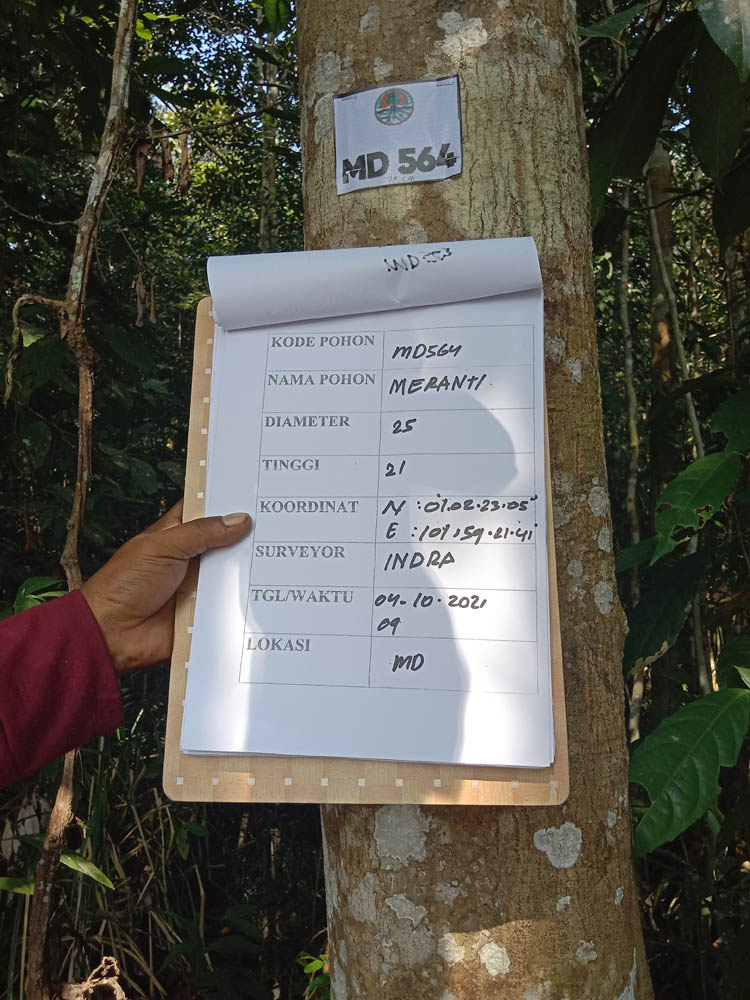 MD 564
MD
KODE POHON MD564
NAMA POHON MERANTI.
DIAMETER 25
TINGGI 21
KOORDINAT N : 01.02.23.05"
E : 101.59.21.41"
SURVEYOR INDRA
TGL/WAKTU 04-10-2021
09
LOKASI MD